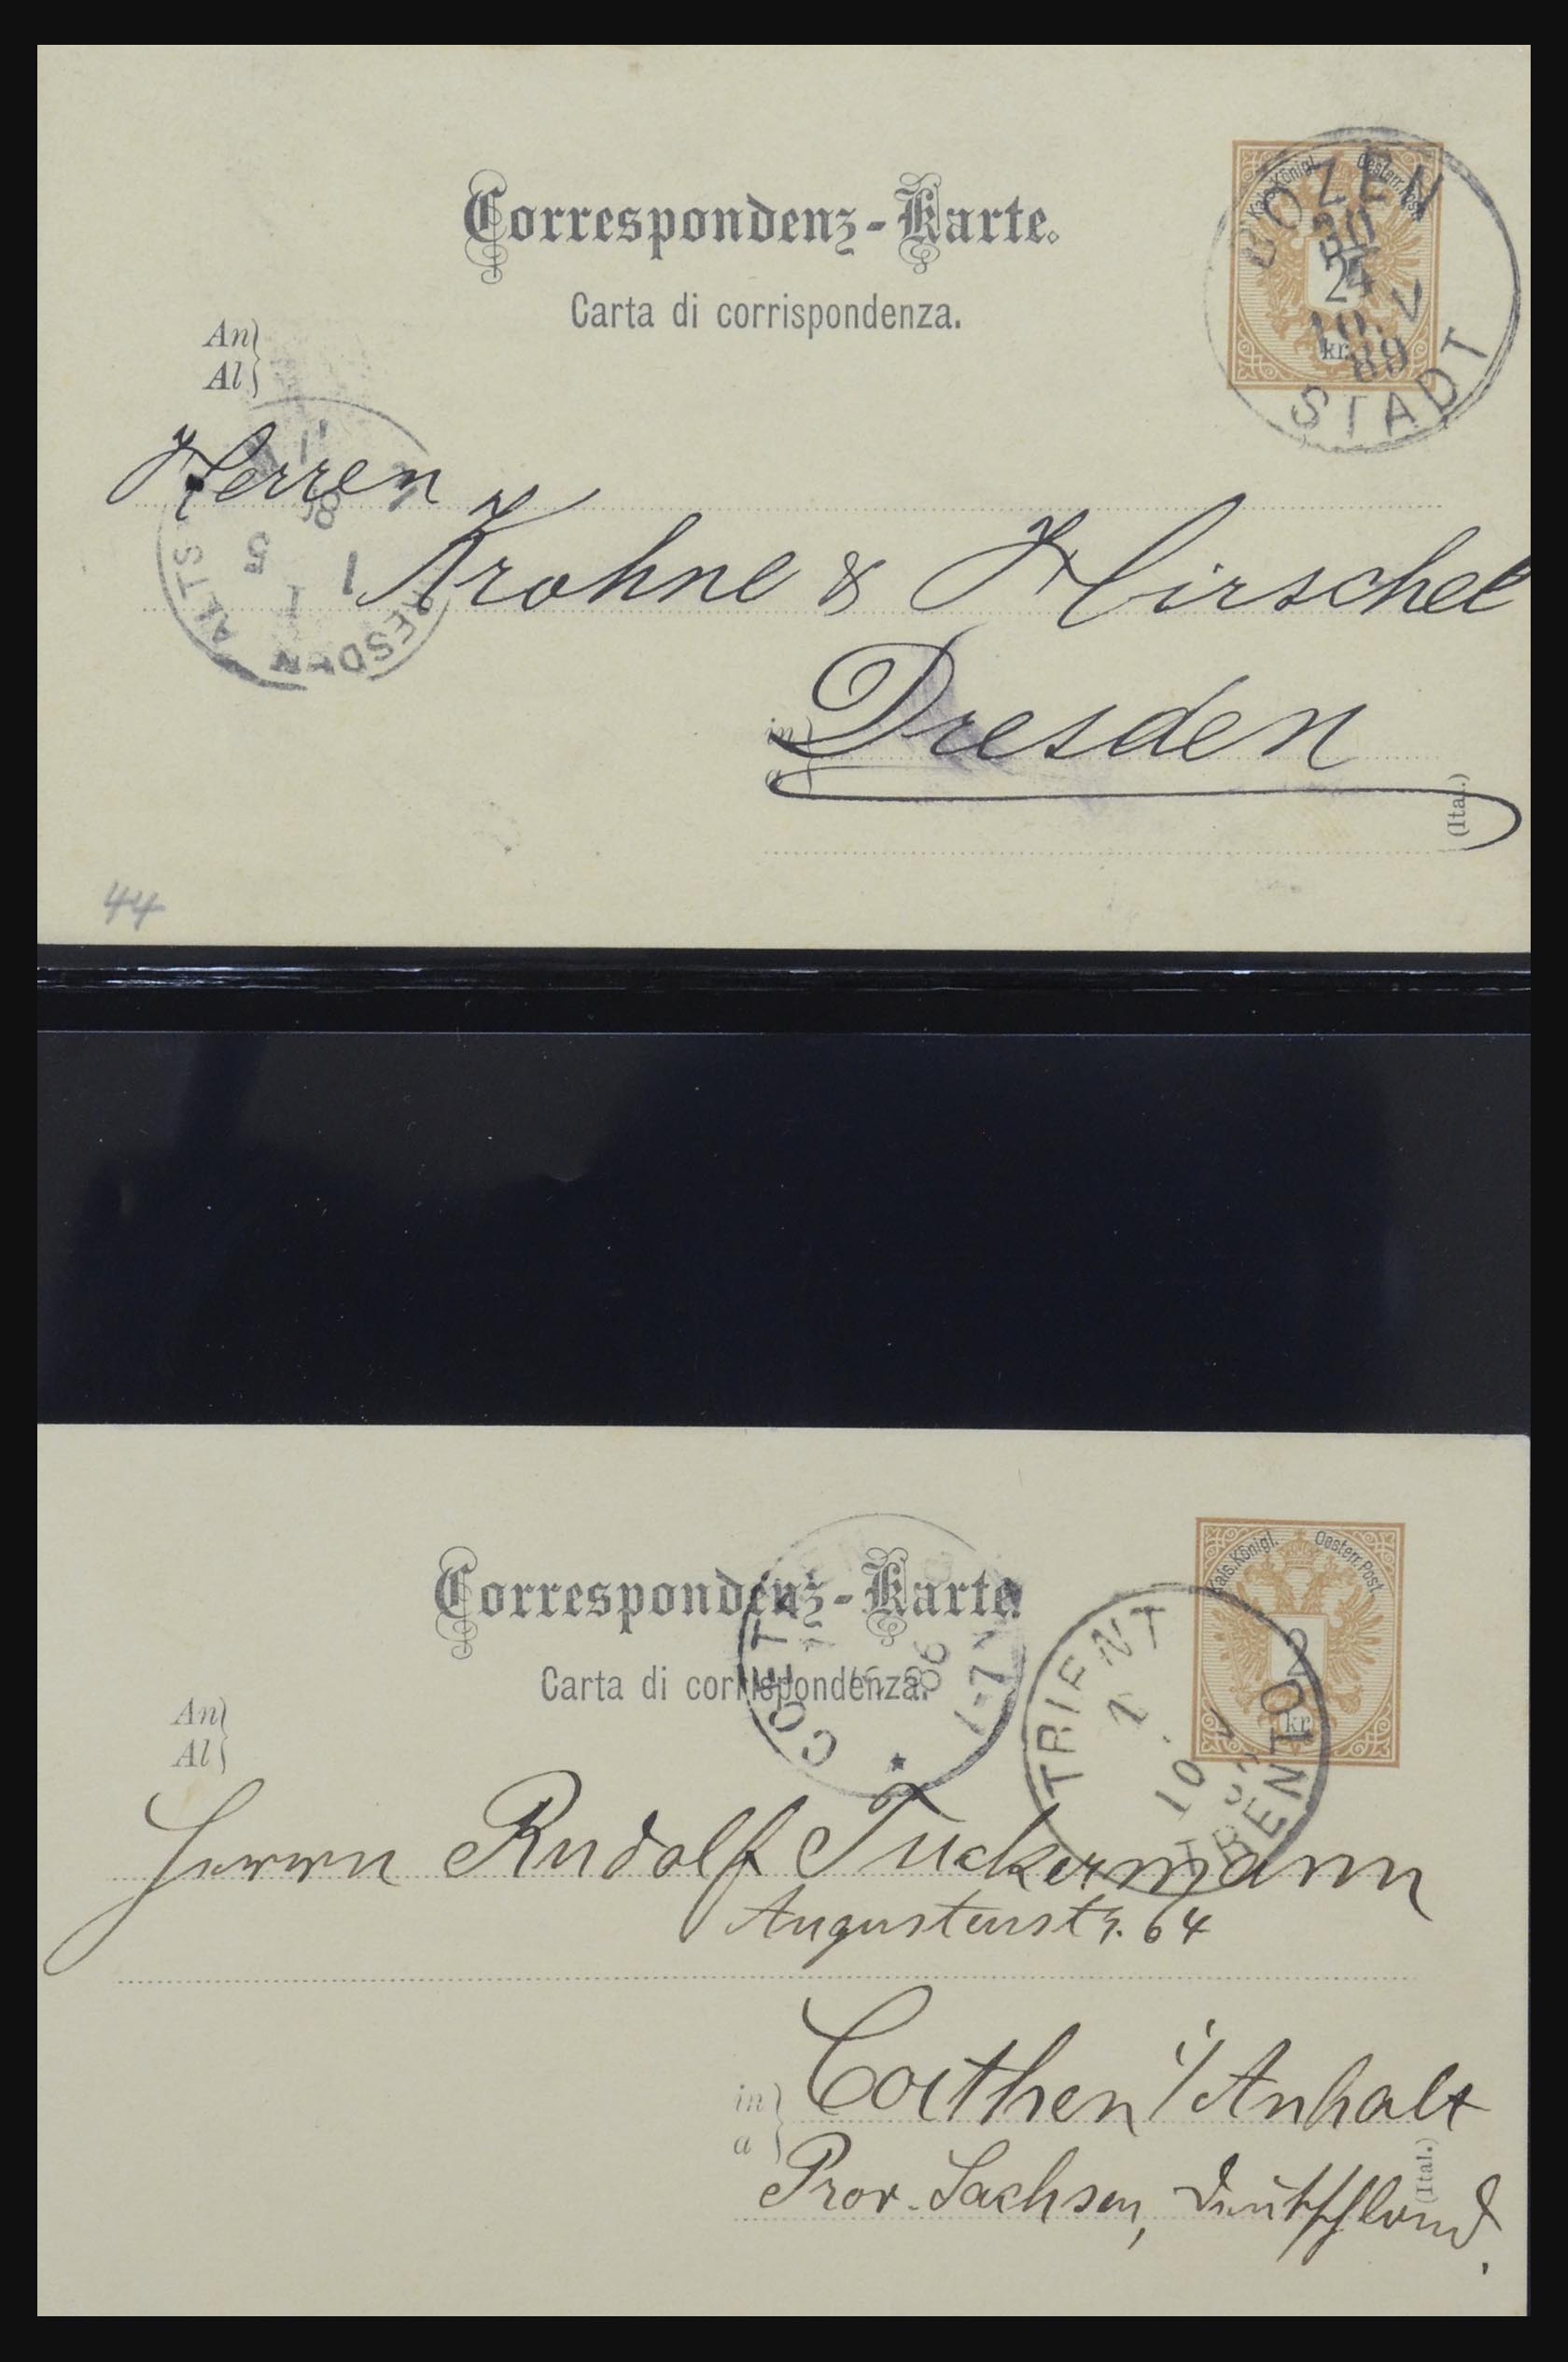 Correspondenz-Karte.
Carta di corrispondenza.
Kais. Königl. Oesterr. Post.
2
kr
BOZEN
STADT
An
Al
Herren
Krohne & Hirschel
in
a
Dresden
(Ital.)
44
Correspondenz-Karte.
Carta di corrispondenza.
Kais. Königl. Oesterr. Post.
2
kr
TRIENT
TRENTO
An
Al
Herrn Rudolf Tuckermann
Augustenstr. 64
in
a
Coethen i/Anhalt
Prov. Sachsen, Deutschland.
(Ital.)